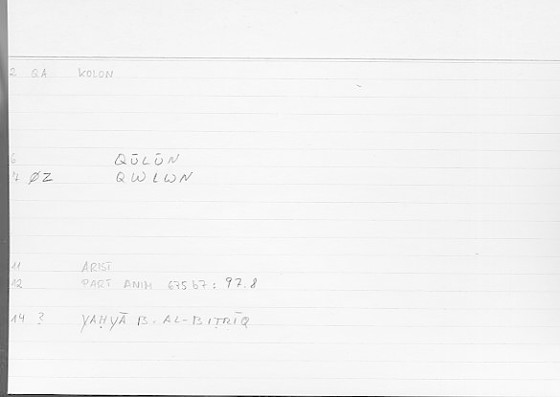 2 QA KOLON
6 QŪLŪN
7 ØZ QWLWN
11 ARIST
12 PART ANIM 675b7: 97.8
14 ? YAḤYĀ B. AL-BIṬRĪQ